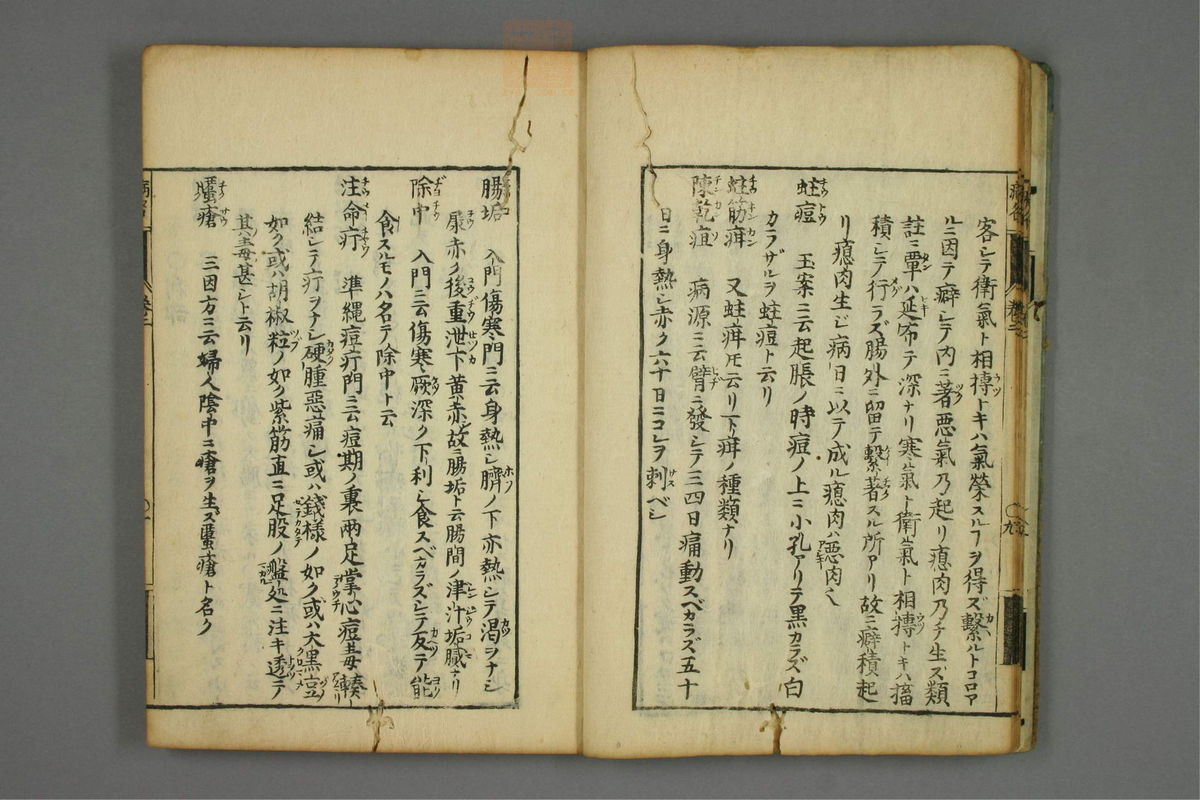 客シテ衛氣ト相摶トキハ氣榮スルヿヲ得ズ繫ルトコロア
ルニ因テ癖シテ内ニ著悪氣乃起リ瘜肉乃チ生ズ類
註ニ覃ハ延布テ深ナリ寒氣ト衛氣ト相摶トキハ搐
積シテ行ラズ腸外ニ留テ繫著スル所アリ故ニ癖積起
リ瘜肉生ジ病日ニ以テ成ル瘜肉ハ悪肉也
蛀痘 玉案ニ云起脹ノ時痘ノ上ニ小孔アリテ黒カラズ白
カラザルヲ蛀痘ト云リ
蛀筋疳 又蛀疳トモ云リ下疳ノ種類ナリ
陳乾疽 病源ニ云臂ニ發シテ三四日痛動スベカラズ五十
日ニ身熱シ赤ク六十日ニコレヲ刺ベシ
腸垢 入門傷寒門ニ云身熱シ臍ノ下亦熱シテ渴ヲナシ
尿赤ク後重泄下黄赤故ニ腸垢ト云腸間ノ津汁垢膩ナリ
除中 入門ニ云傷寒厥深ク下利シ食スベカラズシテ反テ能
食スルモノハ名テ除中ト云
注命疔 準縄痘疔門ニ云痘期ノ裏兩足掌心痘毒輳
結シテ疔ヲナシ硬腫惡痛シ或ハ錢樣ノ如ク或ハ大黒豆
如ク或ハ胡椒粒ノ如ク紫筋直ニ足股ノ処ニ注キ透テ
其毒甚シト云リ
瘡 三因方ニ云婦人陰中ニ瘡ヲ生ズ瘡ト名ク